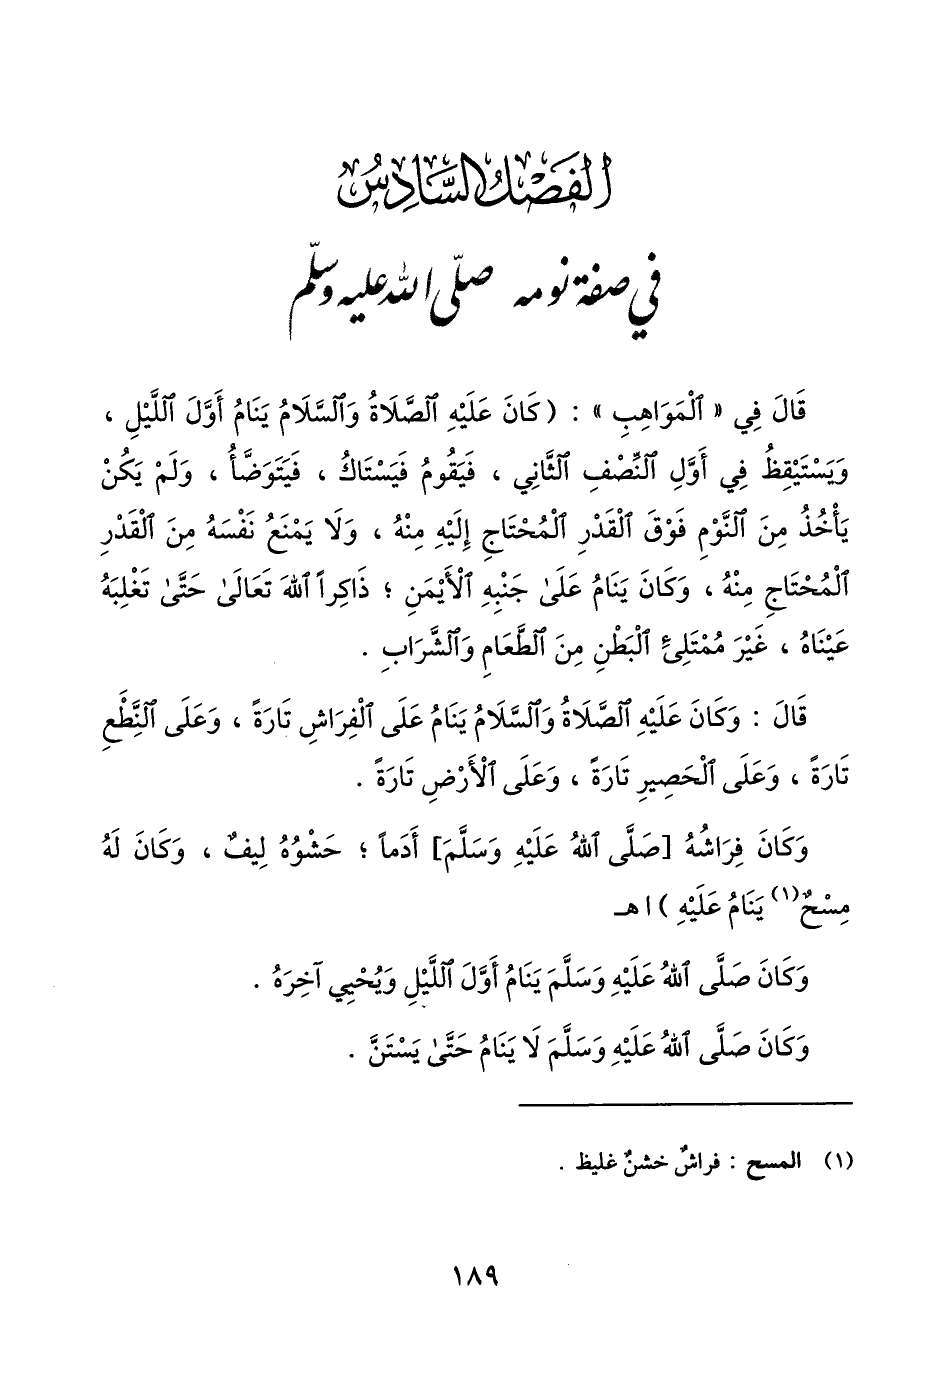 الفَصْلُ السَّادِسُ
في صفة نومه صلّى الله عليه وسلّم
قَالَ فِي « ٱلْمَوَاهِبِ » : ( كَانَ عَلَيْهِ ٱلصَّلَاةُ وَٱلسَّلَامُ يَنَامُ أَوَّلَ ٱللَّيْلِ ،
وَيَسْتَيْقِظُ فِي أَوَّلِ ٱلنِّصْفِ ٱلثَّانِي ، فَيَقُومُ فَيَسْتَاكُ ، فَيَتَوَضَّأُ ، وَلَمْ يَكُنْ
يَأْخُذُ مِنَ ٱلنَّوْمِ فَوْقَ ٱلْقَدْرِ ٱلْمُحْتَاجِ إِلَيْهِ مِنْهُ ، وَلَا يَمْنَعُ نَفْسَهُ مِنَ ٱلْقَدْرِ
ٱلْمُحْتَاجِ مِنْهُ ، وَكَانَ يَنَامُ عَلَىٰ جَنْبِهِ ٱلْأَيْمَنِ ؛ ذَاكِراً ٱللهَ تَعَالَىٰ حَتَّىٰ تَغْلِبَهُ
عَيْنَاهُ ، غَيْرَ مُمْتَلِئِ ٱلْبَطْنِ مِنَ ٱلطَّعَامِ وَٱلشَّرَابِ .
قَالَ : وَكَانَ عَلَيْهِ ٱلصَّلَاةُ وَٱلسَّلَامُ يَنَامُ عَلَى ٱلْفِرَاشِ تَارَةً ، وَعَلَى ٱلنِّطْعِ
تَارَةً ، وَعَلَى ٱلْحَصِيرِ تَارَةً ، وَعَلَى ٱلْأَرْضِ تَارَةً .
وَكَانَ فِرَاشُهُ [صَلَّى ٱللهُ عَلَيْهِ وَسَلَّمَ] أَدَماً ؛ حَشْوُهُ لِيفٌ ، وَكَانَ لَهُ
مِسْحٌ(١) يَنَامُ عَلَيْهِ ) اهـ
وَكَانَ صَلَّى ٱللهُ عَلَيْهِ وَسَلَّمَ يَنَامُ أَوَّلَ ٱللَّيْلِ وَيُحْيِي آخِرَهُ .
وَكَانَ صَلَّى ٱللهُ عَلَيْهِ وَسَلَّمَ لَا يَنَامُ حَتَّىٰ يَسْتَنَّ .
(١) المسح : فراشٌ خشنٌ غليظ .
١٨٩